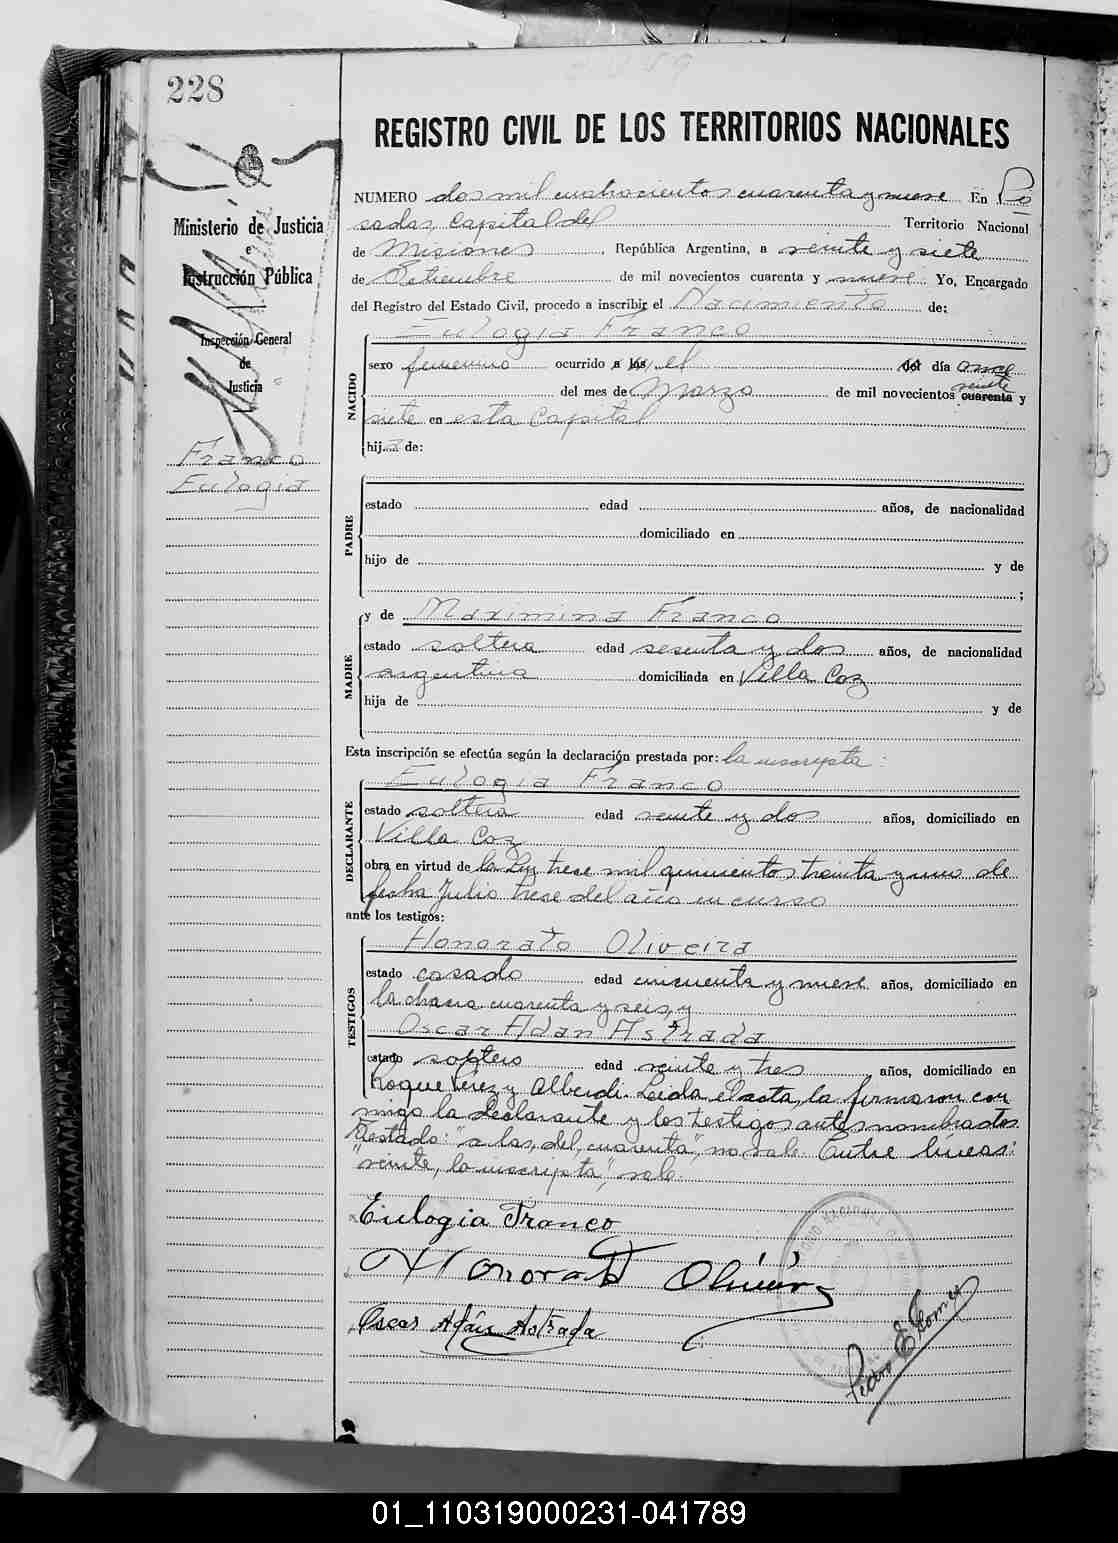 228
REGISTRO CIVIL DE LOS TERRITORIOS NACIONALES
Ministerio de Justicia
e
Instrucción Pública
Inspección General
de
Justicia
Franco
Eulogia
NUMERO dos mil cuatrocientos cuarenta y nueve En Po
sadas, Capital del Territorio Nacional
de Misiones, República Argentina, a veinte y siete
de Setiembre de mil novecientos cuarenta y nueve Yo, Encargado
del Registro del Estado Civil, procedo a inscribir el Nacimiento de:
Eulogia Franco
NACIDO
sexo femenino ocurrido a las el del día once
del mes de Marzo de mil novecientos cuarenta veinte y
siete en esta Capital
hija de:
PADRE
estado edad años, de nacionalidad
domiciliado en
hijo de y de
;
MADRE
y de Maximina Franco
estado soltera edad sesenta y dos años, de nacionalidad
argentina domiciliada en Villa Coz
hija de y de
Esta inscripción se efectúa según la declaración prestada por: la inscripta:
DECLARANTE
Eulogia Franco
estado soltera edad veinte y dos años, domiciliado en
Villa Coz
obra en virtud de la Ley trece mil quinientos treinta y uno de
fecha Julio trece del año en curso
ante los testigos:
TESTIGOS
Honorato Oliveira
estado casado edad cincuenta y nueve años, domiciliado en
la chacra cuarenta y seis, y
Oscar Adan Astrada
estado soltero edad veinte y tres años, domiciliado en
Roque Perez y Alberdi. Leida el acta, la firmaron con
migo la declarante y los testigos antes nombrados.
Testado: "a las, del, cuarenta", no vale. Entre líneas:
"veinte, la inscripta", vale.
Eulogia Franco
Honorato Oliveira
Oscar Adan Astrada
Pedro E. Gomez
01_110319000231-041789